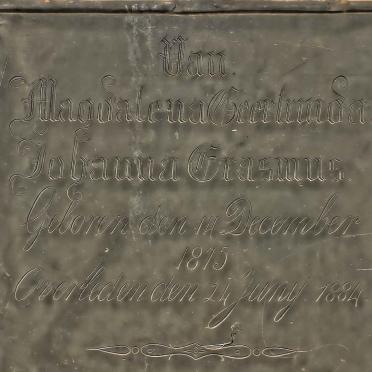 Van.
Magdalena Geertruida
Johanna Erasmus.
Geboren den 14 December
1875
Overleden den 24 Juny. 1884